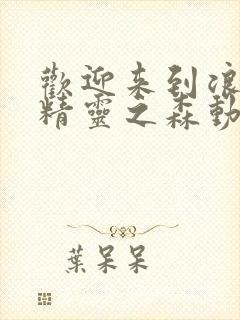 歡迎来到浪
精靈之森動
葉呆呆